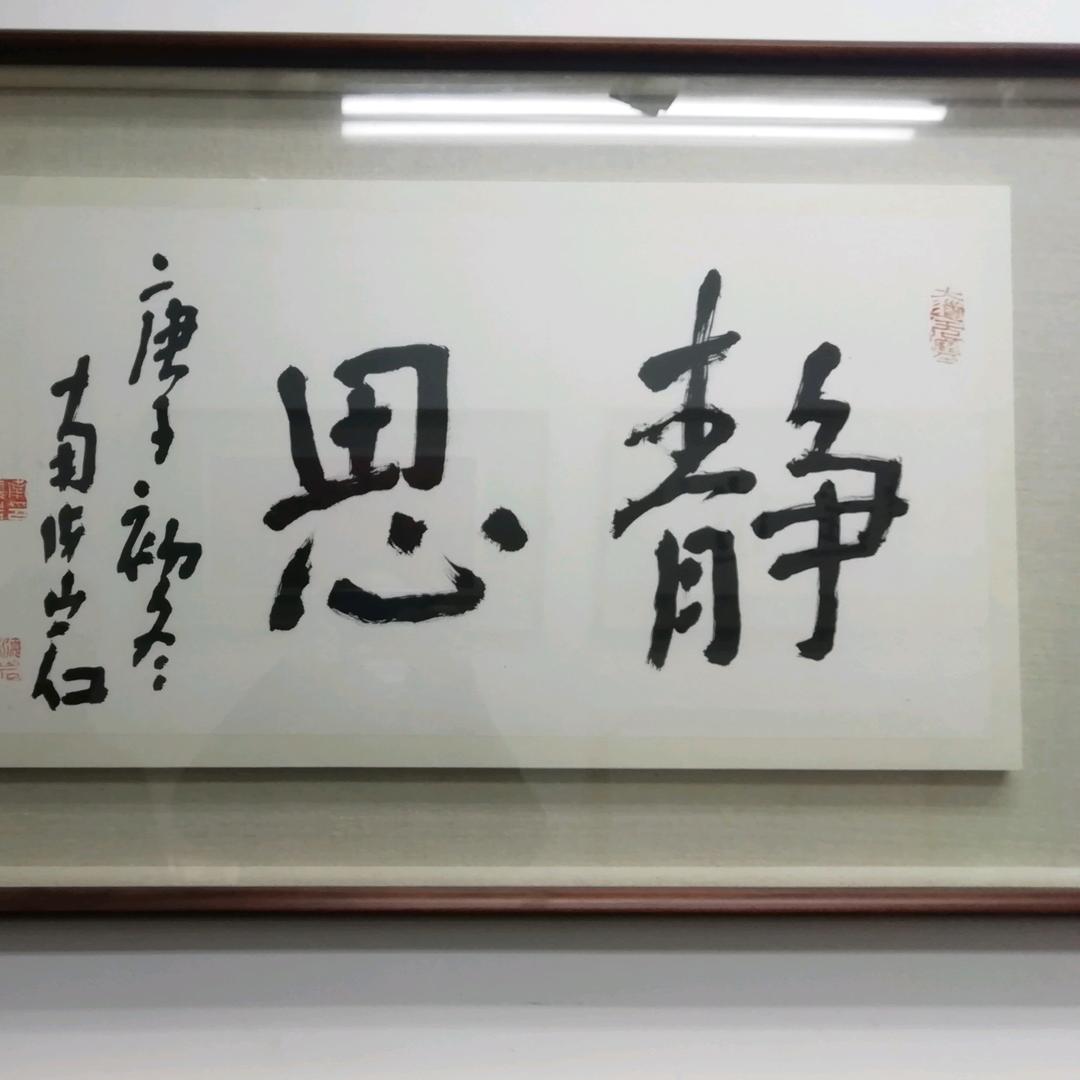 静思
庚子初冬
南 山仁